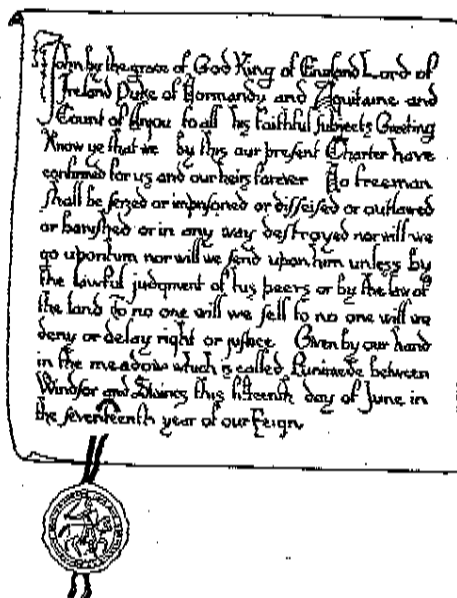 John by the grace of God King of England Lord of
Ireland Duke of Normandy and Aquitaine and
Count of Anjou to all his faithful subjects Greeting
Know ye that we by this our present Charter have
confirmed for us and our heirs forever No freeman
shall be seized or imprisoned or disseised or outlawed
or banished or in any way destroyed nor will we
go upon him nor will we send upon him unless by
the lawful judgment of his peers or by the law of
the land To no one will we sell to no one will we
deny or delay right or justice Given by our hand
in the meadow which is called Runimede between
Windsor and Staines this fifteenth day of June in
the seventeenth year of our reign